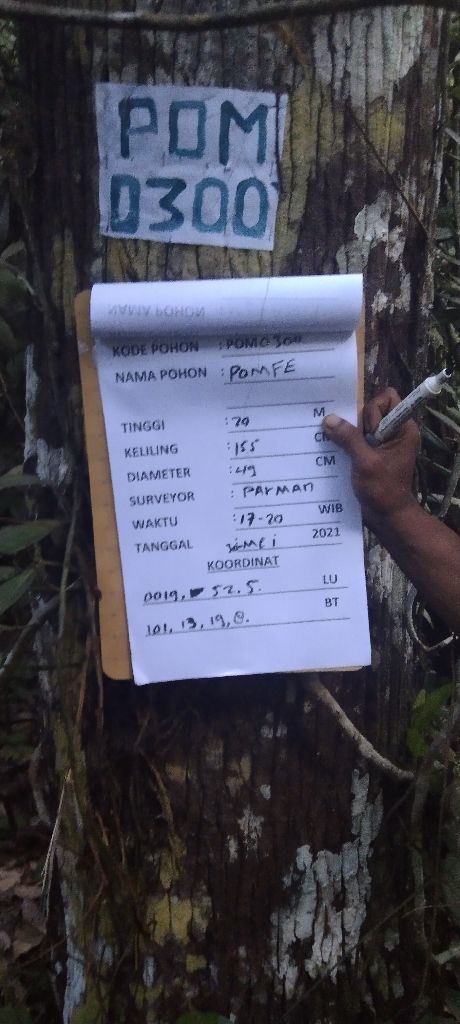 POM
0300
NAMA POHON
KODE POHON : POM0300
NAMA POHON : POMFE
TINGGI : 20 M
KELILING : 155 CM
DIAMETER : 49 CM
SURVEYOR : PARMAN
WAKTU : 17-20 WIB
TANGGAL MEI 2021
KOORDINAT
0019, 52.5. LU
101, 13, 19, 8. BT